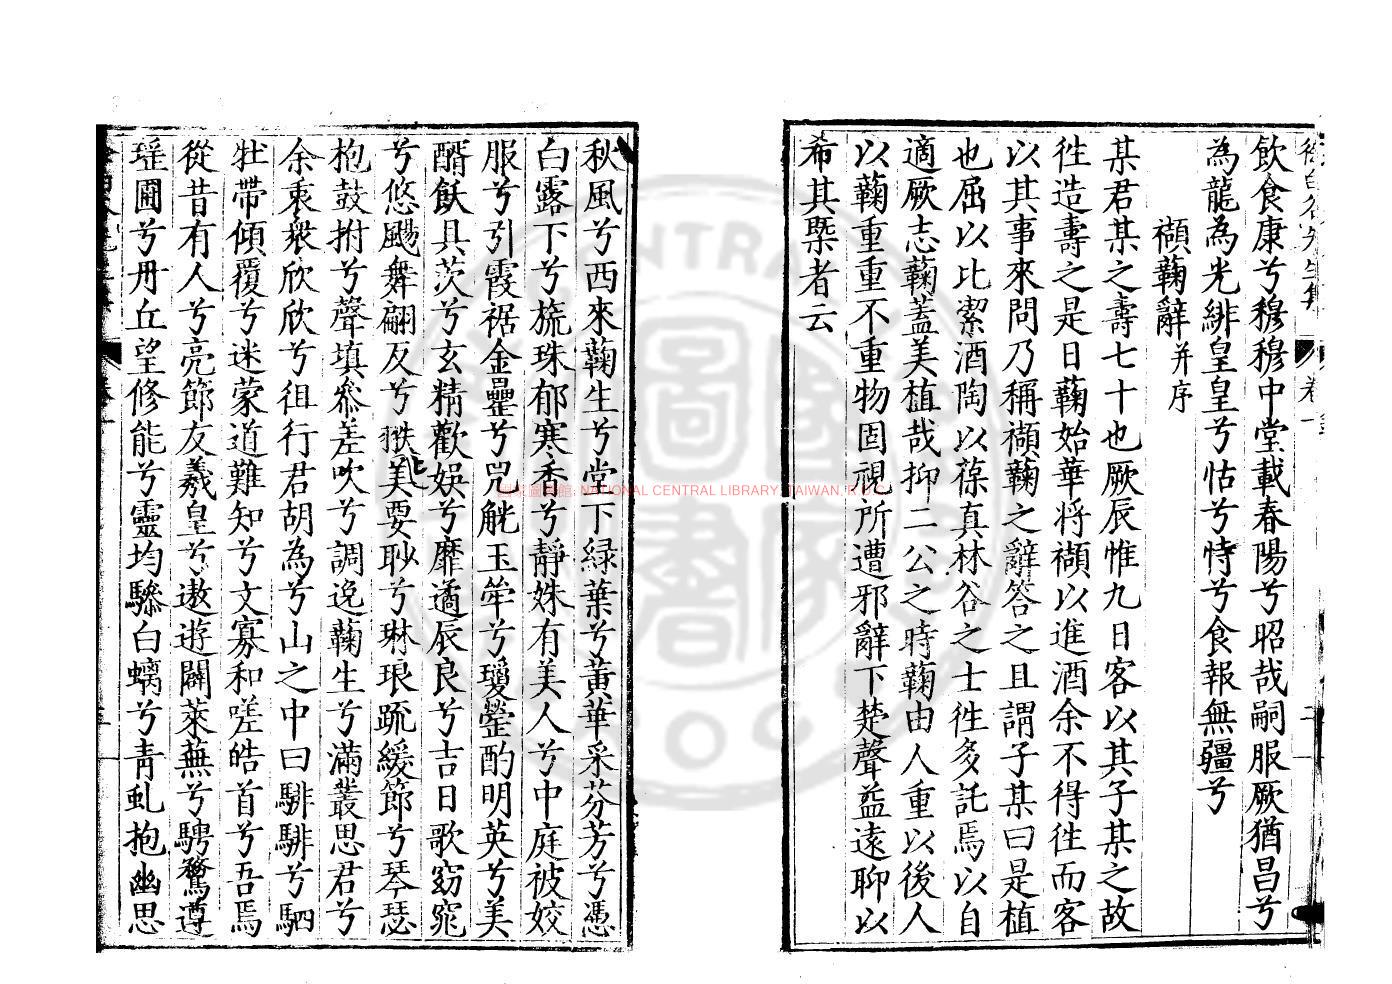 飲食康兮穆穆中堂載春陽兮昭哉嗣服厥猶昌兮
為龍為光緋皇皇兮怙兮恃兮食報無疆兮
纈蘜辭并序
某君某之壽七十也厥辰惟九日客以其子某之故
徃造壽之是日蘜始華将纈以進酒余不得徃而客
以其事來問乃稱纈蘜之辭答之且謂子某曰是植
也屈以比潔酒陶以葆真林谷之士徃多託焉以自
適厥志蘜蓋美植哉抑二公之時蘜由人重以後人
以蘜重重不重物固視所遭邪辭下楚聲益遠聊以
希其槩者云
秋風兮西來蘜生兮堂下緑葉兮黃華采芬芳兮憑
白露下兮旒珠郁寒香兮靜姝有美人兮中庭被姣
服兮引霞裾金罍兮兕觥玉斝兮瓊罃酌明英兮美
醑飫具茨兮玄精歡娛兮靡遹辰良兮吉日歌窈窕
兮悠颺舞翩反兮跌美要眇兮琳琅疏緩節兮琴瑟
抱鼓拊兮聲填叅差吹兮調逸蘜生兮滿叢思君兮
余裏衆欣欣兮徂行君胡為兮山之中曰騑騑兮駟
牡帶傾覆兮迷蒙道難知兮文寡和嗟皓首兮吾焉
從昔有人兮亮節友羲皇兮遨遊闢萊蕪兮騁騖遵
瑶圃兮丹丘望修能兮靈均驂白螭兮青虬抱幽思
卷一
NATIONAL CENTRAL LIBRARY, TAIWAN, R.O.C